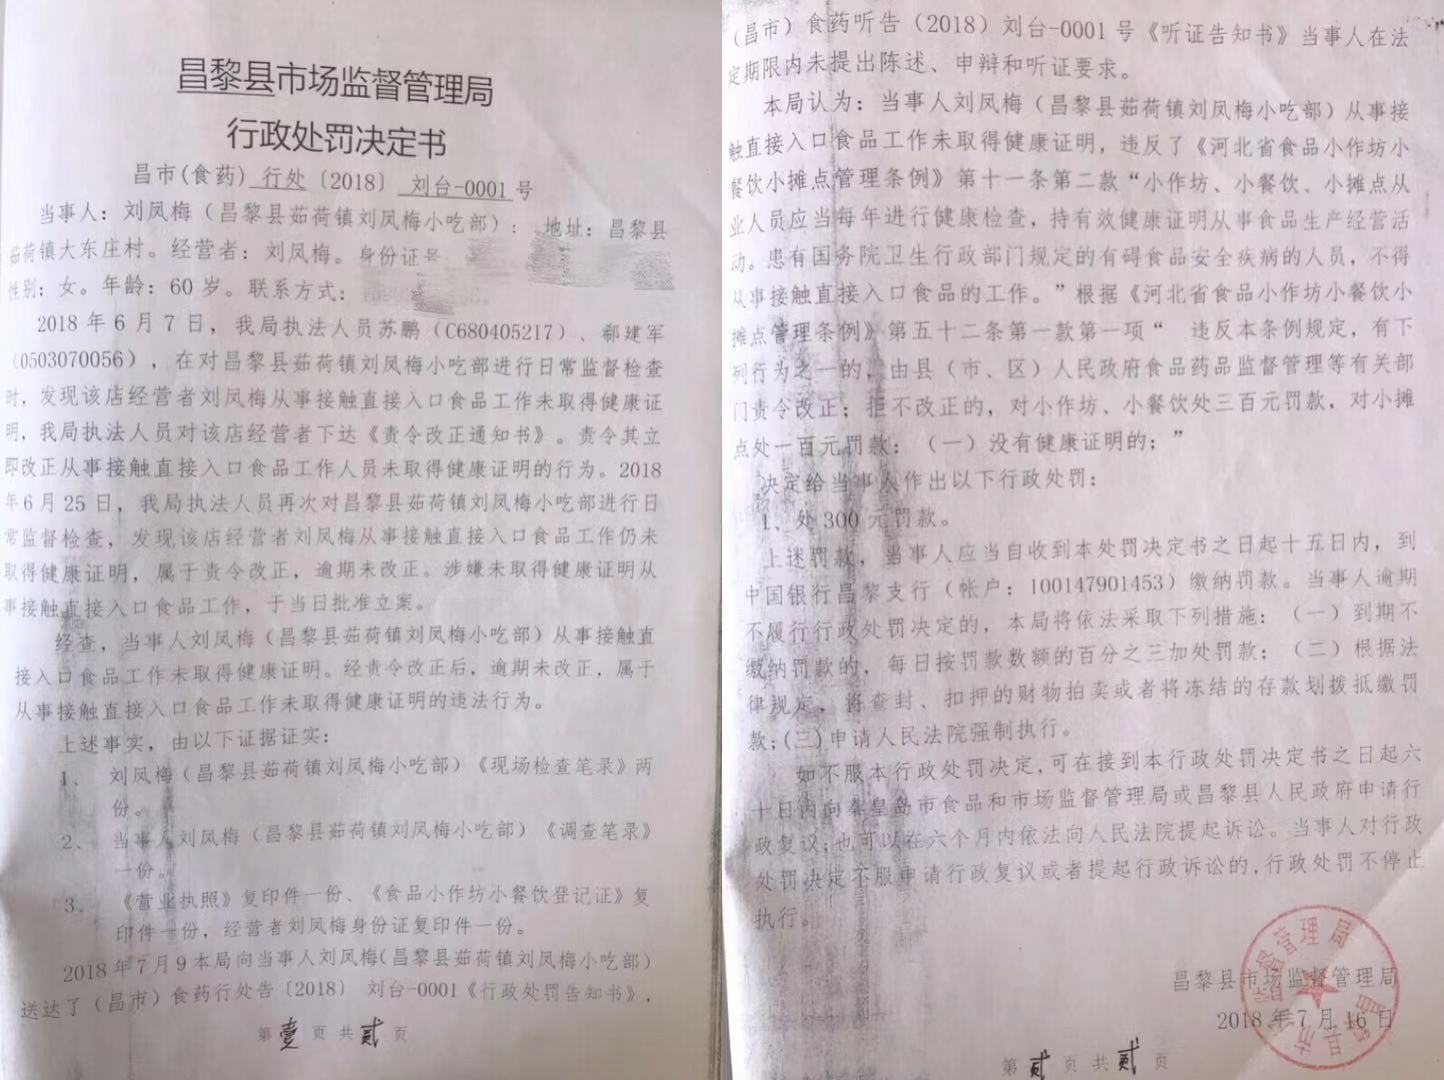 昌黎县市场监督管理局
行政处罚决定书
昌市(食药) 行处〔2018〕 刘台-0001 号
当事人：刘凤梅（昌黎县茹荷镇刘凤梅小吃部）： 地址：昌黎县
茹荷镇大东庄村。经营者：刘凤梅。身份证号
性别：女。年龄：60 岁。联系方式：
2018 年 6 月 7 日，我局执法人员苏鹏（C680405217）、郗建军
（0503070056），在对昌黎县茹荷镇刘凤梅小吃部进行日常监督检查
时，发现该店经营者刘凤梅从事接触直接入口食品工作未取得健康证
明，我局执法人员对该店经营者下达《责令改正通知书》。责令其立
即改正从事接触直接入口食品工作人员未取得健康证明的行为。2018
年6 月 25 日，我局执法人员再次对昌黎县茹荷镇刘凤梅小吃部进行日
常监督检查，发现该店经营者刘凤梅从事接触直接入口食品工作仍未
取得健康证明，属于责令改正，逾期未改正。涉嫌未取得健康证明从
事接触直接入口食品工作，于当日批准立案。
经查，当事人刘凤梅（昌黎县茹荷镇刘凤梅小吃部）从事接触直
接入口食品工作未取得健康证明。经责令改正后，逾期未改正，属于
从事接触直接入口食品工作未取得健康证明的违法行为。
上述事实，由以下证据证实：
1、 刘凤梅（昌黎县茹荷镇刘凤梅小吃部）《现场检查笔录》两
份。
2、 当事人刘凤梅（昌黎县茹荷镇刘凤梅小吃部）《调查笔录》
一份。
3、 《营业执照》复印件一份、《食品小作坊小餐饮登记证》复
印件一份，经营者刘凤梅身份证复印件一份。
2018 年 7 月 9 本局向当事人刘凤梅（昌黎县茹荷镇刘凤梅小吃部）
送达了（昌市）食药行处告〔2018〕 刘台-0001《行政处罚告知书》，
第 壹 页 共 贰 页
（昌市）食药听告（2018）刘台-0001 号《听证告知书》当事人在法
定期限内未提出陈述、申辩和听证要求。
本局认为：当事人刘凤梅（昌黎县茹荷镇刘凤梅小吃部）从事接
触直接入口食品工作未取得健康证明，违反了《河北省食品小作坊小
餐饮小摊点管理条例》第十一条第二款“小作坊、小餐饮、小摊点从
业人员应当每年进行健康检查，持有效健康证明从事食品生产经营活
动。患有国务院卫生行政部门规定的有碍食品安全疾病的人员，不得
从事接触直接入口食品的工作。”根据《河北省食品小作坊小餐饮小
摊点管理条例》第五十二条第一款第一项“ 违反本条例规定，有下
列行为之一的，由县（市、区）人民政府食品药品监督管理等有关部
门责令改正；拒不改正的，对小作坊、小餐饮处三百元罚款，对小摊
点处一百元罚款：（一）没有健康证明的；”
决定给当事人作出以下行政处罚：
1、处 300 元罚款。
上述罚款，当事人应当自收到本处罚决定书之日起十五日内，到
中国银行昌黎支行（帐户：100147901453）缴纳罚款。当事人逾期
不履行行政处罚决定的，本局将依法采取下列措施：（一）到期不
缴纳罚款的，每日按罚款数额的百分之三加处罚款；（二）根据法
律规定，将查封、扣押的财物拍卖或者将冻结的存款划拨抵缴罚
款；(三)申请人民法院强制执行。
如不服本行政处罚决定,可在接到本行政处罚决定书之日起六
十日内向秦皇岛市食品和市场监督管理局或昌黎县人民政府申请行
政复议;也可以在六个月内依法向人民法院提起诉讼。当事人对行政
处罚决定不服申请行政复议或者提起行政诉讼的,行政处罚不停止
执行。
昌黎县市场监督管理局
2018 年 7 月 16 日
第 贰 页 共 贰 页